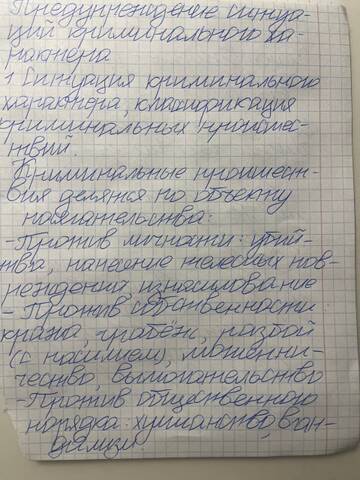 Предупреждение ситуа-
ций криминального ха-
рактера
1 Ситуация криминального
характера, классификация
криминальных происшес-
твий.
Криминальные происшест-
вия делятся по объекту
посягательства:
- Против личности: убий-
тва, нанесение телесных пов-
реждений, изнасилование
- Против собственности
кража, грабёж, разбой
(с насилием), мошенни-
чество, вымогательство
- Против общественного
порядка: хулиганство, ван-
дализм